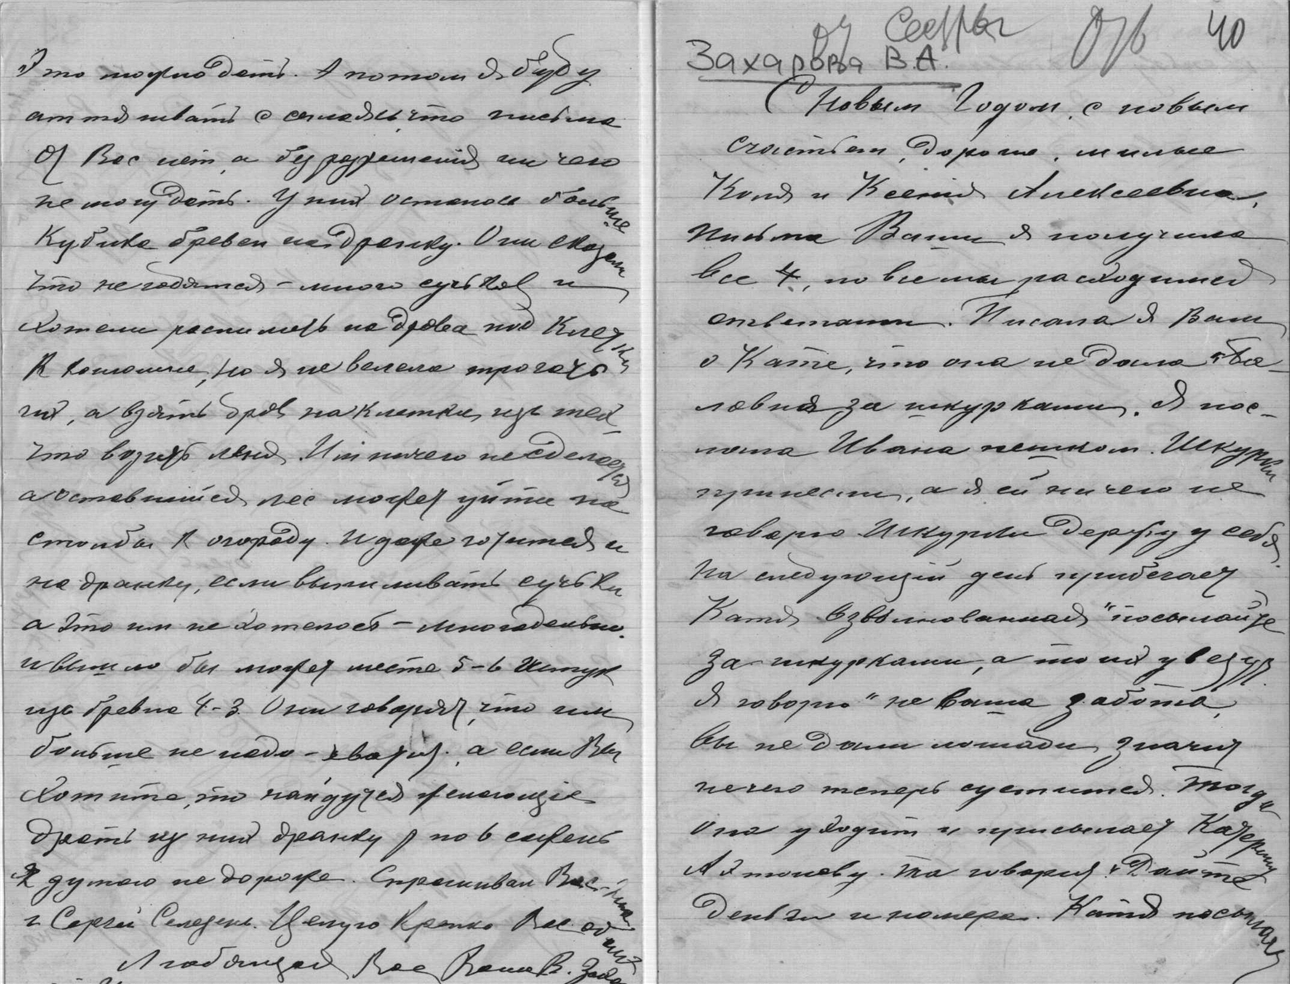 Это можно деть. А потом я буду
оттягивать с сылаясь, что письма
От Вас нет, а без разрешения ни чего
не могу деть. У них осталось больше
Кубика бревен на дранку. Они сказали
что не годятся – много сучьков и
хотели распилить на дрова под Клетки
к конюшне, но я не велела трогать
их, а взять дров на клетки из тех
что возят
а оставшийся лес может уйти на
столбы к огороду. И даже годится и
на дранку, если выпиливать сучьки
а это им не хотелось – многодельно.
и вышло бы может место 5-6 штук
из бревна 4-3. Они говорят, что им
больше не надо – хватит, а если Вы
хотите, то найдутся желающие
драть из них дранку по 6 сажень
Я думаю не дороже. Спрашивал Вас
и Сергей Селезень. Целую Крепко Вас
Любящая Вас Ваша В.
от Сестры Отв 40
Захарова В.А.
С Новым Годом, с новым
счастьем, дорогие, милые
Коля и Ксения Алексеевна,
Письма Ваши я получила
все 4, но все мы расходимся
ответами. Писала я Вам
о Кате, что она не дала
за шкурками. Я пос-
лала Ивана пешком. Шкурки
принесли, а я ей ничего не
говорю Шкурки держу у себя.
На следующий день прибегает
Катя взволнованная "посылайте
за шкурками, а то их увезут
Я говорю "не Ваша забота,
Вы не дали лошади, значит
нечего теперь суетится. Тогда
она уходит и присылает Катерину
Та говорит "Дайте
деньги и номера. Катя послала